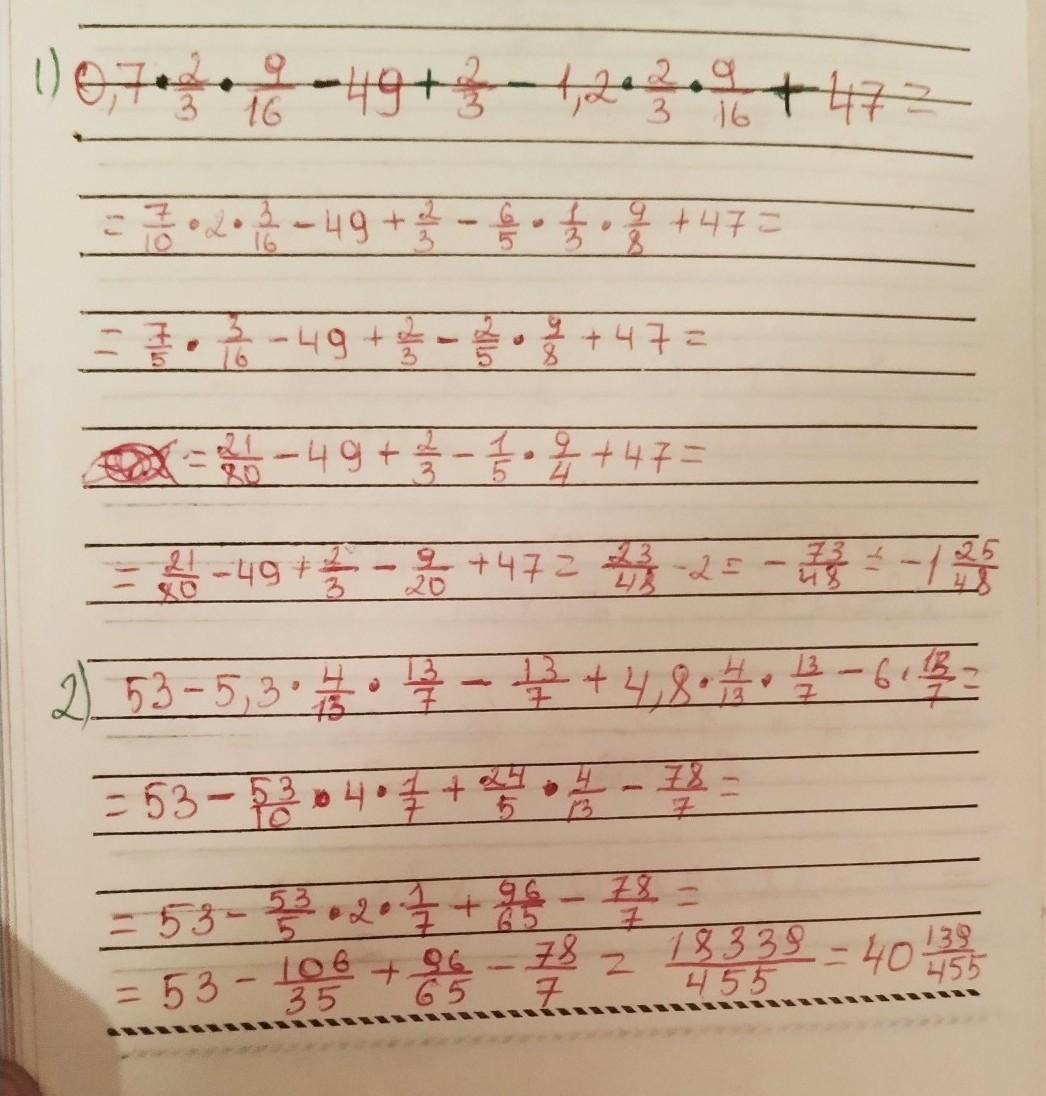 1) 0,7 · 2/3 · 9/16 - 49 + 2/3 - 1,2 · 2/3 · 9/16 + 47 =
= 7/10 · 2 · 3/16 - 49 + 2/3 - 6/5 · 1/3 · 9/8 + 47 =
= 7/5 · 3/16 - 49 + 2/3 - 2/5 · 9/8 + 47 =
= 21/80 - 49 + 2/3 - 1/5 · 9/4 + 47 =
= 21/80 - 49 + 2/3 - 9/20 + 47 = 23/48 - 2 = - 73/48 = - 1 25/48
2) 53 - 5,3 · 4/13 · 13/7 - 13/7 + 4,8 · 4/13 · 13/7 - 6 · 13/7 =
= 53 - 53/10 · 4 · 1/7 + 24/5 · 4/13 - 78/7 =
= 53 - 53/5 · 2 · 1/7 + 96/65 - 78/7 =
= 53 - 106/35 + 96/65 - 78/7 = 18339/455 = 40 139/455